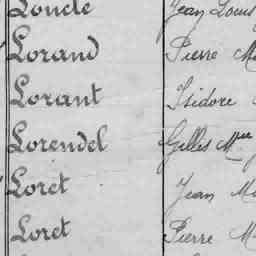 Loncle Jean Louis
Lorand Pierre M
Lorant Isidore
Lorendel Gilles Mie
Loret Jean M
Loret Pierre M